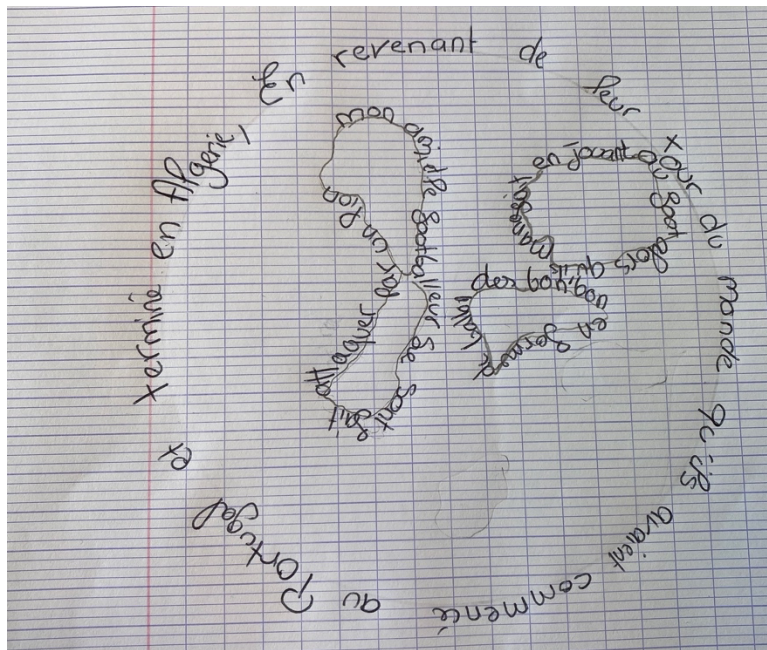 En revenant de leur tour du monde qu'ils avaient commencé au Portugal et terminé en Algérie,
Mon ami de footballeur se sont fait attaquer par un lion
en jouant au foot alors qu'ils
des
en forme